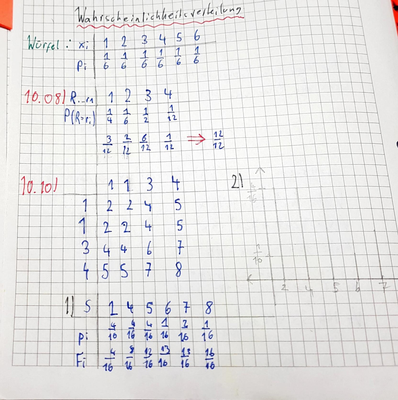 Wahrscheinlichkeitsverteilung
Würfel: xi 1 2 3 4 5 6
pi 1/6 1/6 1/6 1/6 1/6 1/6
10.08) 1 2 3 4
1/4 1/6 1/2 1/12
3/12 2/12 6/12 1/12 ⇒ 12/12
10.10) 1 1 3 4 2)
1 2 2 4 5
1 2 2 4 5
3 4 4 6 7
4 5 5 7 8
2 4 5 6 7
1) S 1 4 5 6 7 8
pi 4/10 4/16 4/16 1/16 1/16
Fi 4/16 8/16 12/16 13/16 16/16